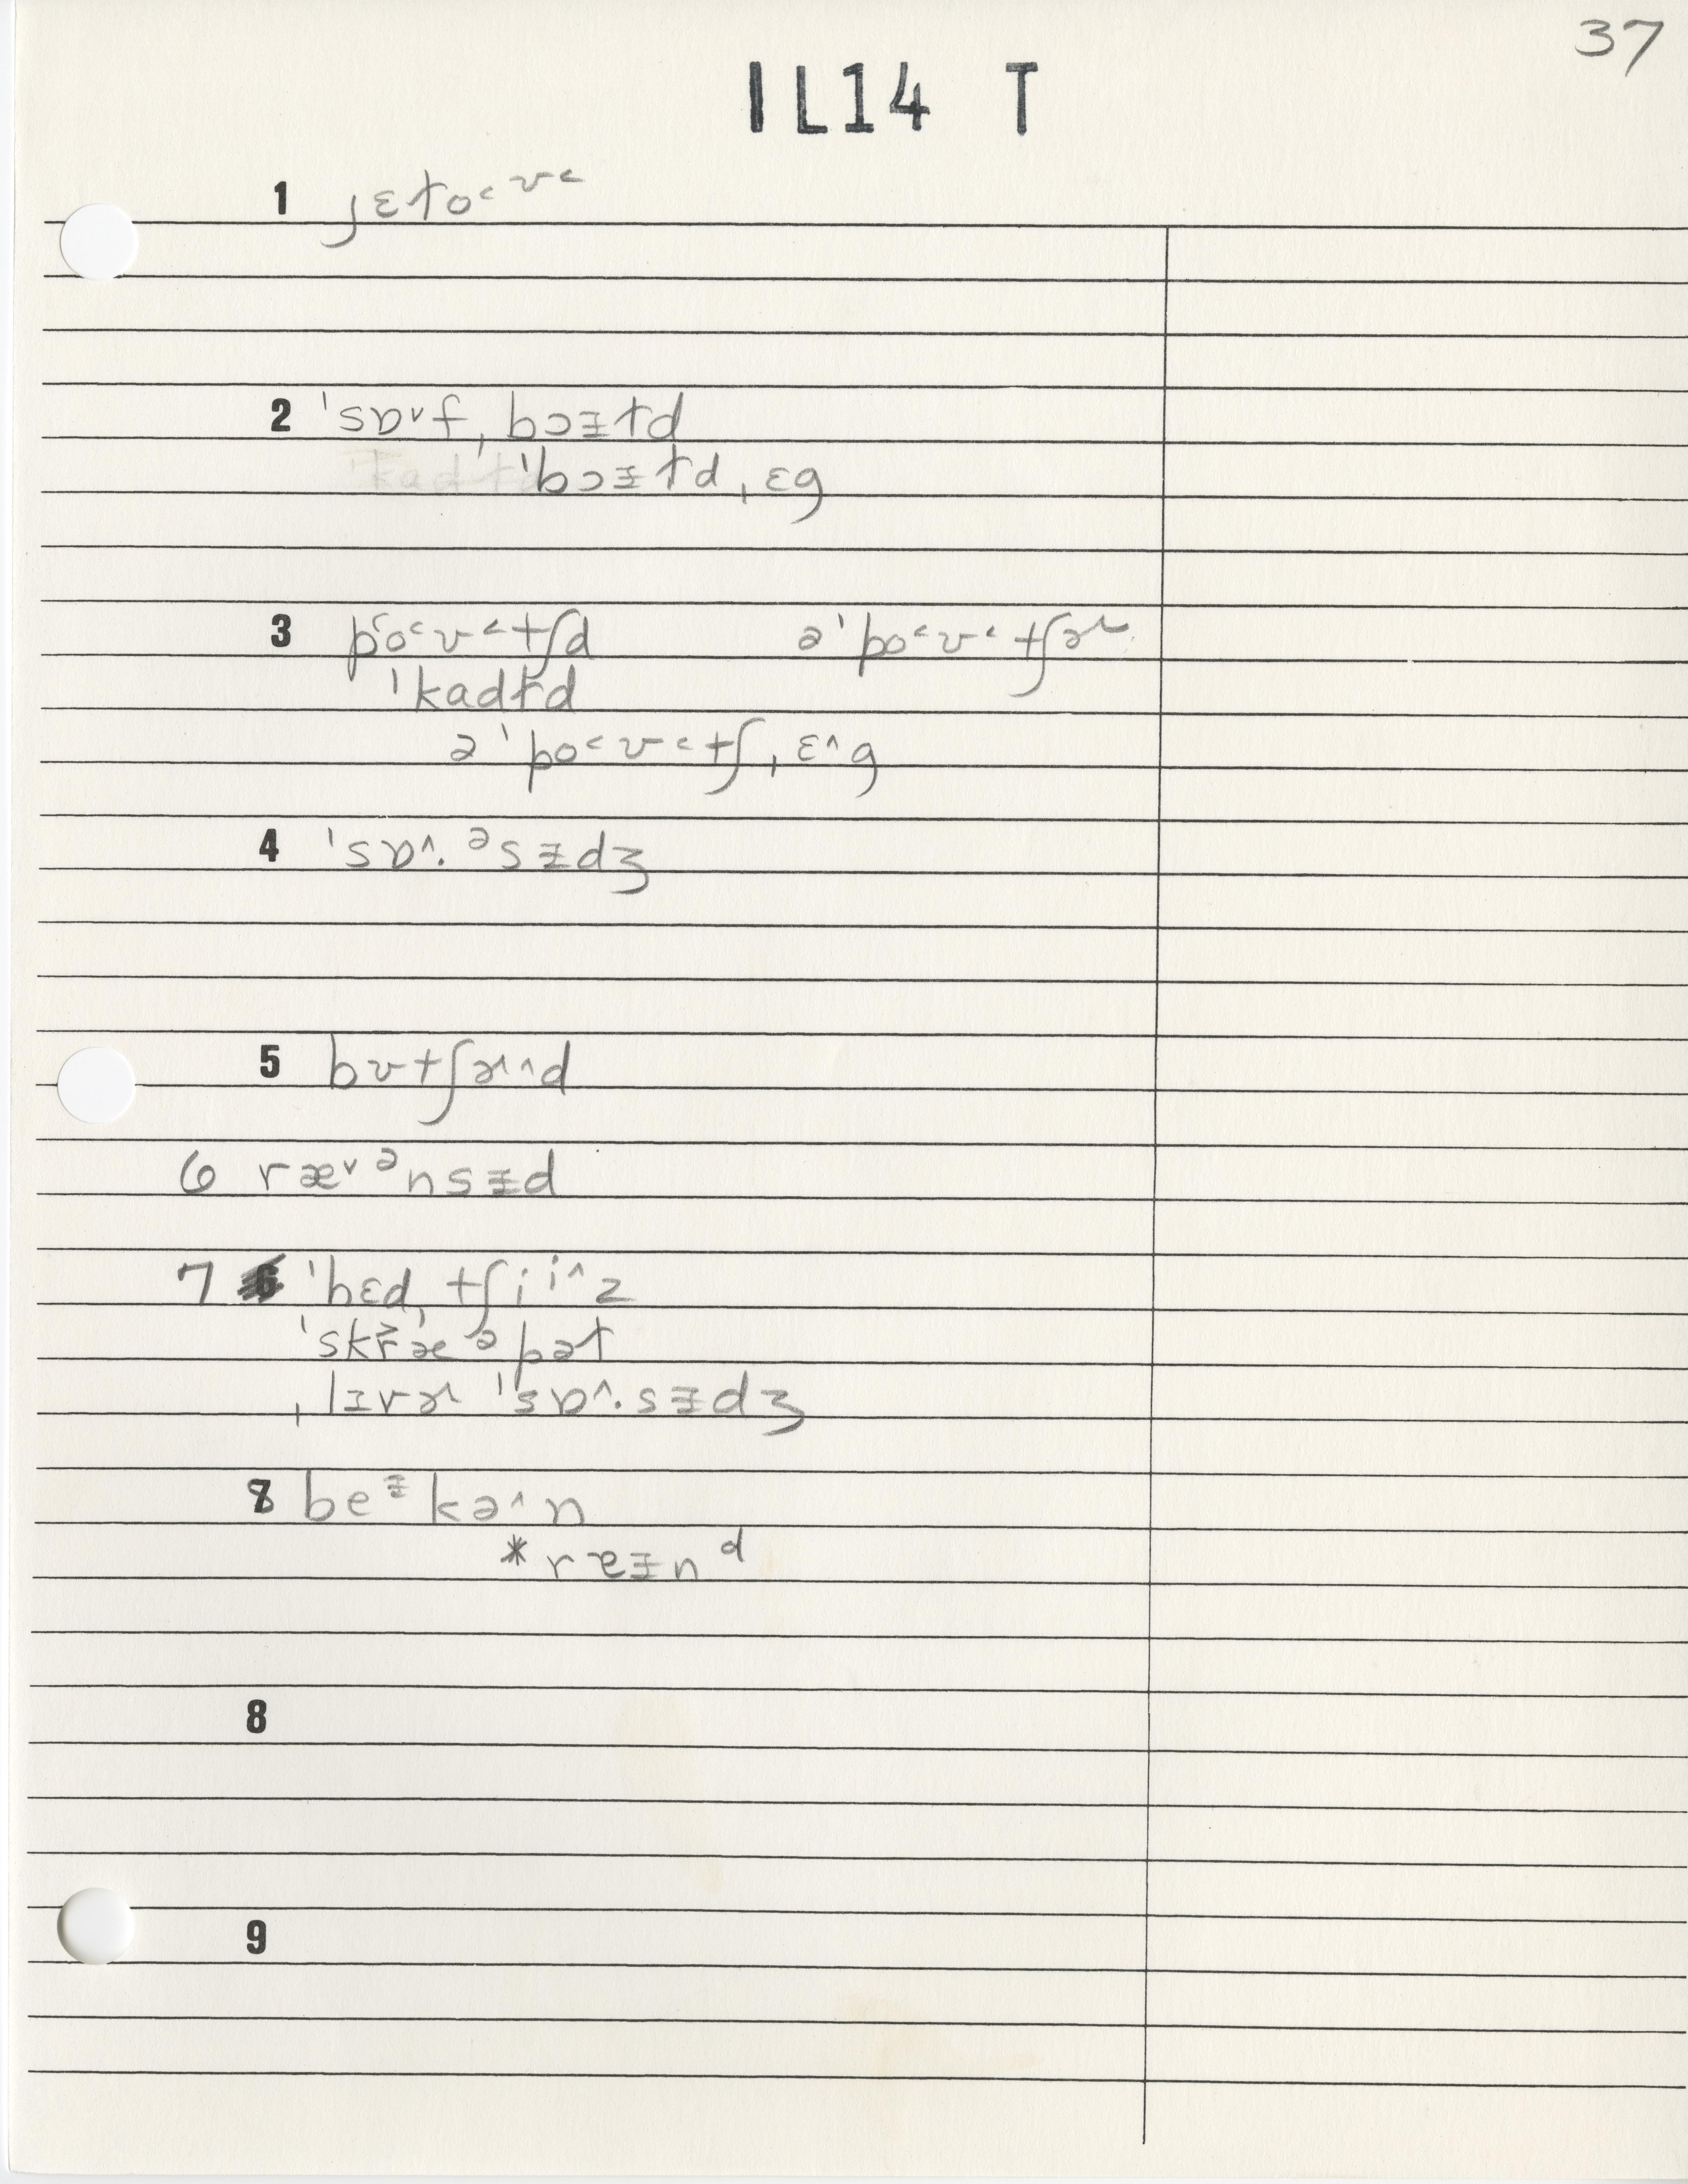 37
IL14 T
1 jɛt̬o˂ʊ˂
2 ˈsɒ˅f ˌbɔᵻt̬d
ˈbɔᵻt̬d ˌɛg
3 po˂ʊ˂tʃd əˈpo˂ʊ˂tʃɚ
ˈkadt̬d
əˈpo˂ʊ˂tʃ ˌɛ˄g
4 ˈsɒ˄·ᵊsᵻdʒ
5 bʊtʃɚ˄d
6 ræ˅ᵊnsᵻd
7 ˈhɛd ˌtʃiⁱ˄z
ˈskr̆æᵊpət̬
ˌlɪvɚ ˈsɒ˄·sᵻdʒ
8 beᵻkə˄n
*ræᵻnᵈ
8
9